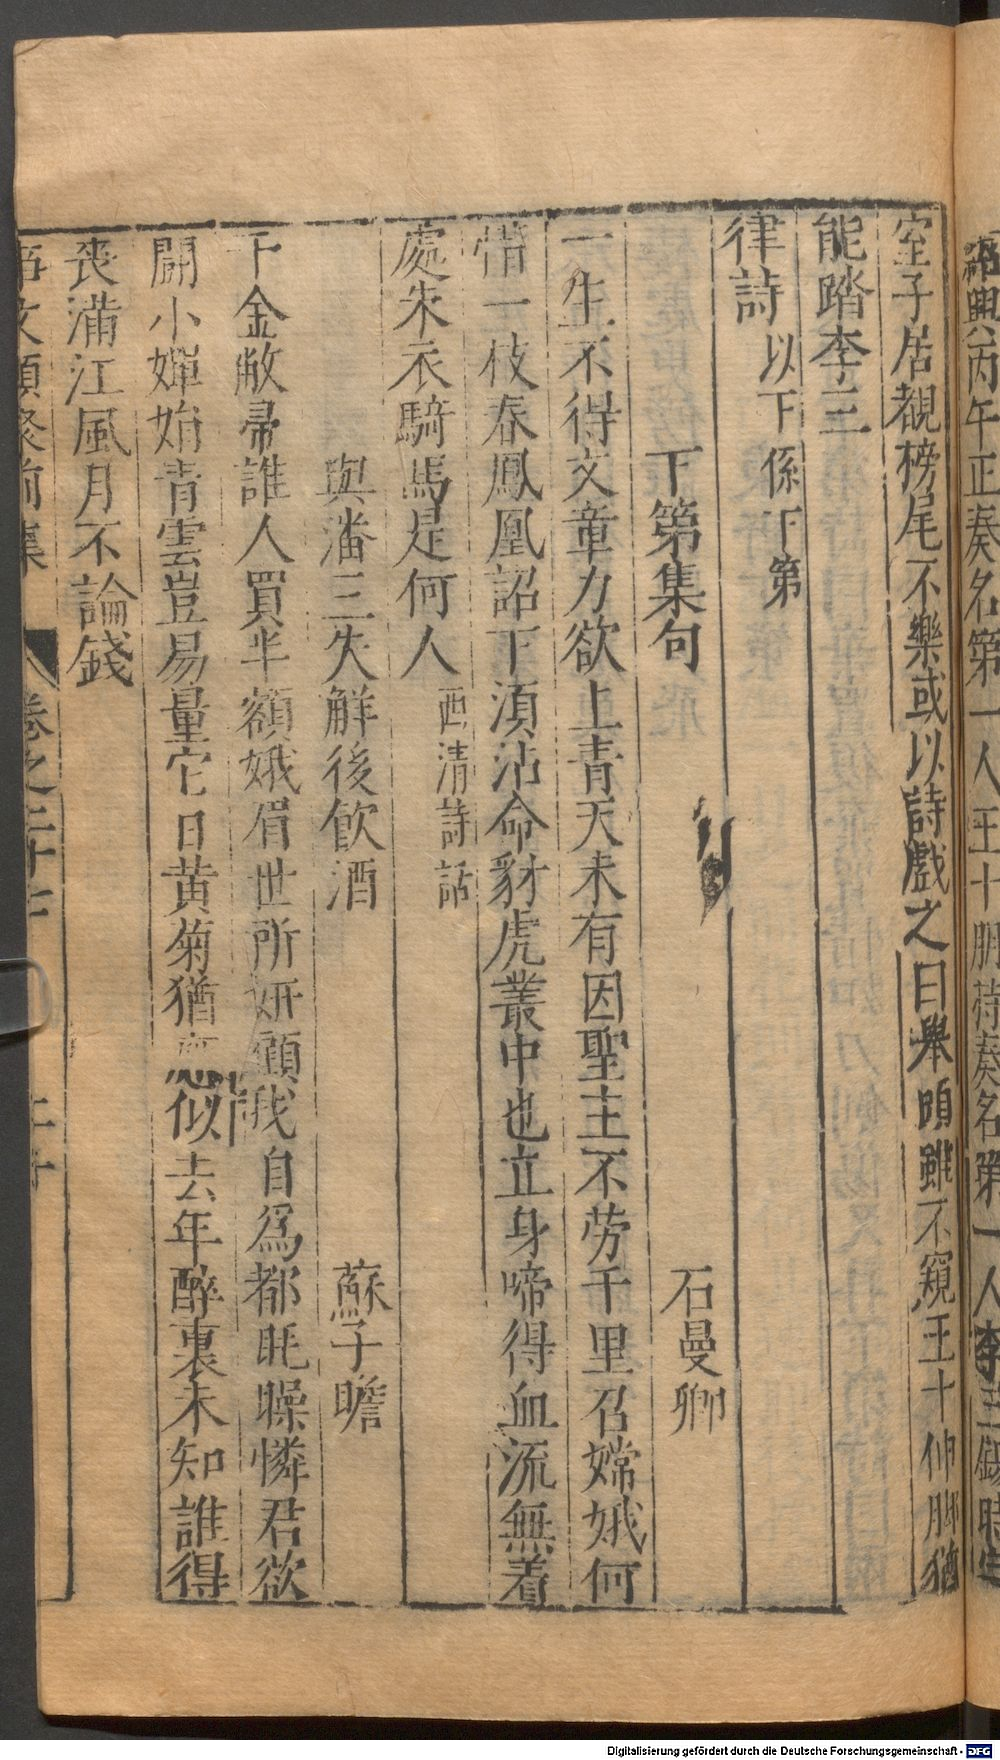 紹興丙午正奏名第一人王十朋特奏名第一人李三錫時宗
室子居觀榜尾不樂或以詩戲之曰舉頭雖不窺王十伸脚猶
能踏李三
律詩 以下係下第
下第集句 石曼卿
一生不得文章力欲上青天未有因聖主不勞千里召嫦娥何
惜一枝春鳳凰詔下須沾命豺虎叢中也立身啼得血流無着
處朱衣騎馬是何人 西清詩話
與潘三失解後飲酒 蘇子瞻
千金敝帚誰人買半額娥眉世所妍顧我自為都眊矂憐君欲
鬭小嬋娟青雲豈易量它日黃菊猶應似去年醉裏未知誰得
喪滿江風月不論錢
事文類聚前集 卷之二十七
Digitalisierung gefördert durch die Deutsche Forschungsgemeinschaft - DFG